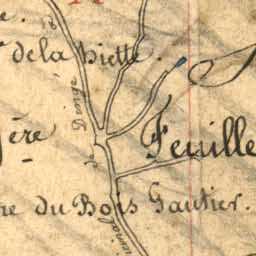 de la Diette.
de Dingé
ère
Feuille
du Bois Gautier.